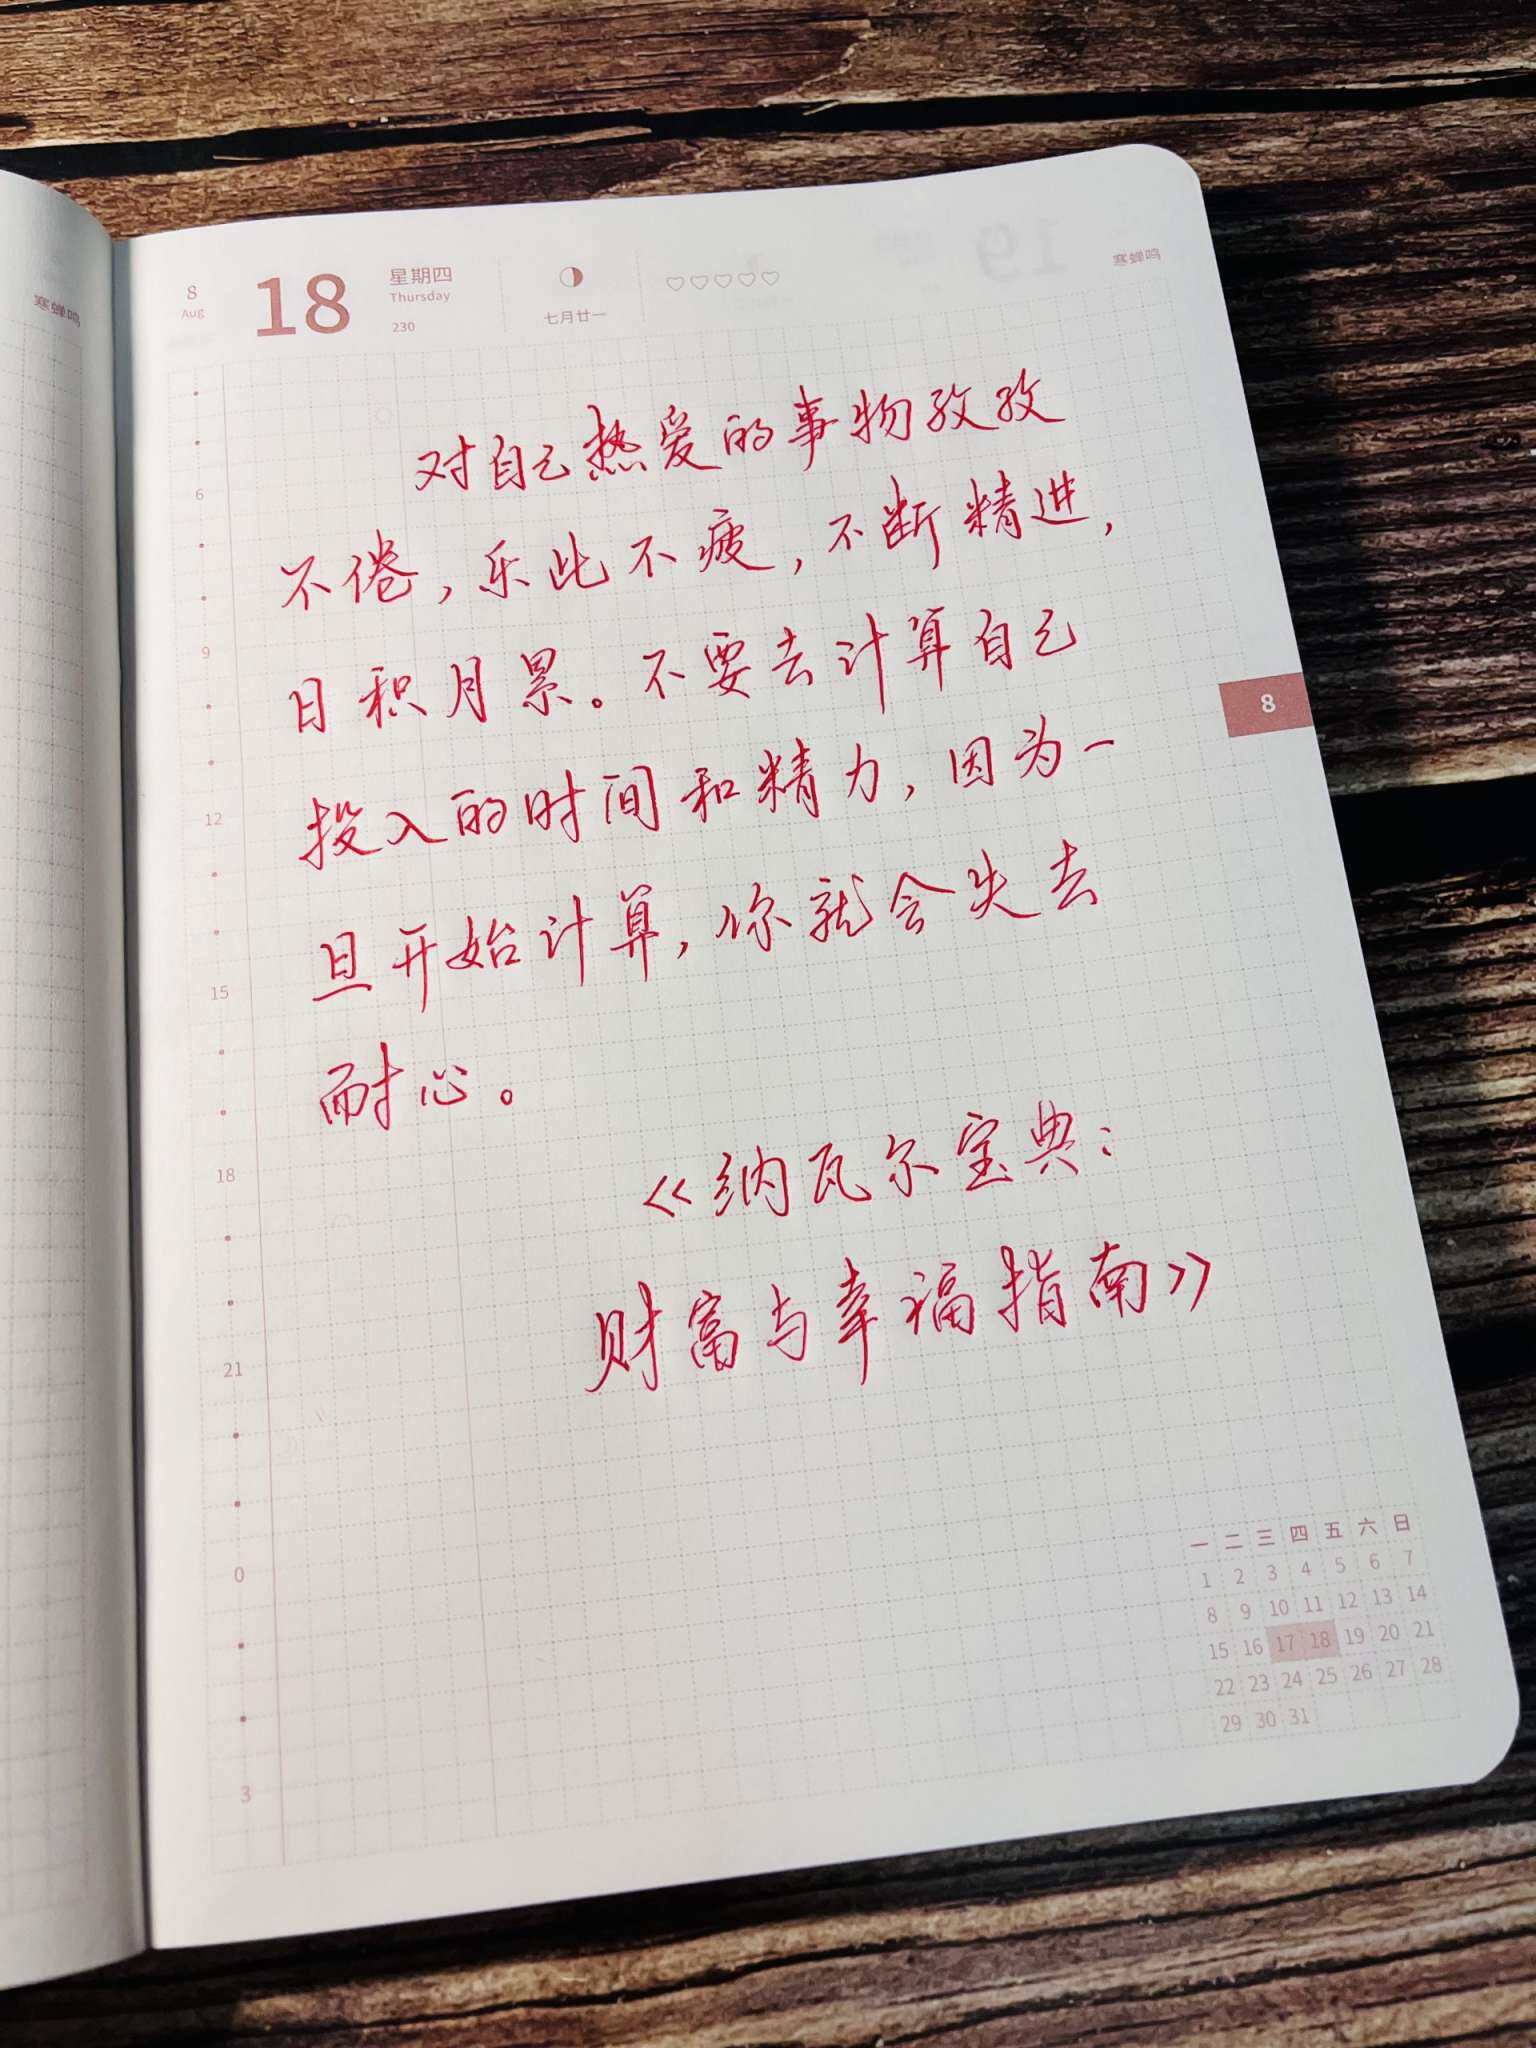 寒蝉鸣
8
Aug
18
星期四
Thursday
230
七月廿一
寒蝉鸣
对自己热爱的事物孜孜
不倦，乐此不疲，不断精进，
日积月累。不要去计算自己
投入的时间和精力，因为一
旦开始计算，你就会失去
耐心。
《纳瓦尔宝典：
财富与幸福指南》
6
9
12
15
18
21
0
3
8
一 二 三 四 五 六 日
1 2 3 4 5 6 7
8 9 10 11 12 13 14
15 16 17 18 19 20 21
22 23 24 25 26 27 28
29 30 31